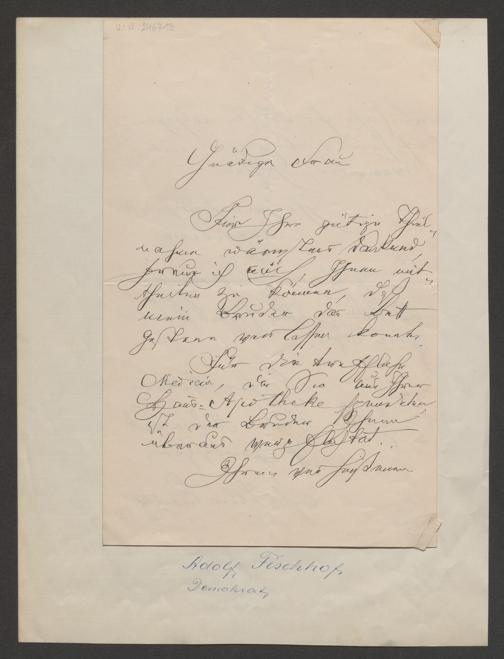 Gnädige Frau
Für Ihre gütige Theil-
nahme wärmstens dankend,
freue ich mich, Ihnen mit-
theilen zu können, daß
mein Bruder das Bett
gestern verlassen konnte.
Für die treffliche
Medicin, die Sie aus Ihrer
Haus-Apotheke spendeten
ist der Bruder Ihnen
überaus verpflichtet.
Ihrem
Adolf Fischhof,
Demokrat,